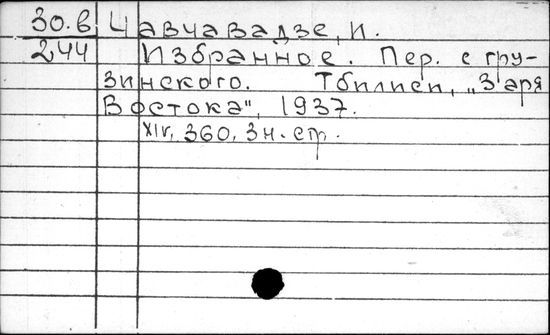 30.б Чавчавадзе, И.
244 Избранное. Пер. с гру-
зинского. Тбилиси, „Заря
Востока", 1937.
XIV, 360, 3 н. стр.